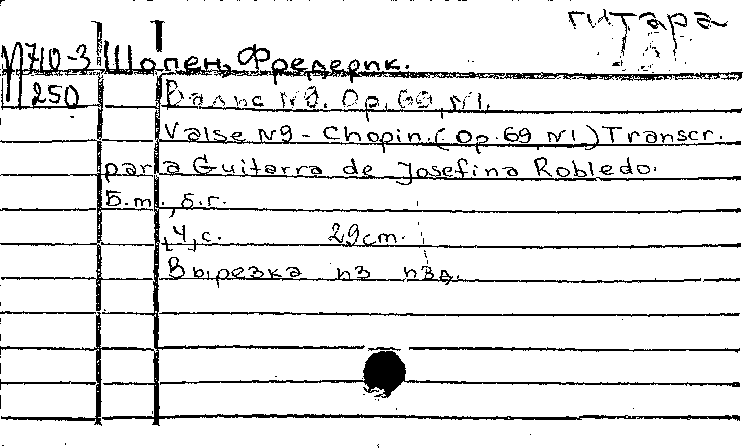 гитара
М710-3 Шопен, Фредерик.
250 Вальс №9. Op. 69, №1.
Valse №9 - Chopin. (Op. 69 №1) Transcr.
para Guitarra de Josefina Robledo.
Б.м., б.г.
,4, с. 29cm.
Вырезка из изд.